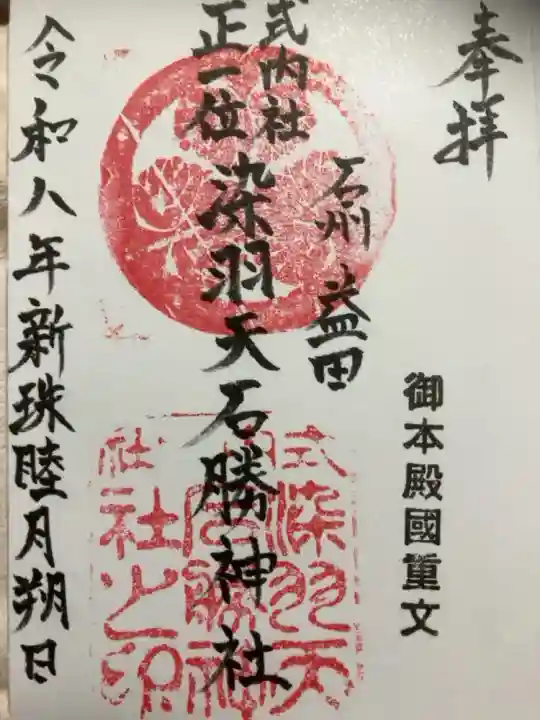 奉拝
御本殿國重文
石州 益田
式内社
正一位
染羽天石勝神社
式内社
染羽天
石勝神
社之印
令和八年新珠睦月朔日